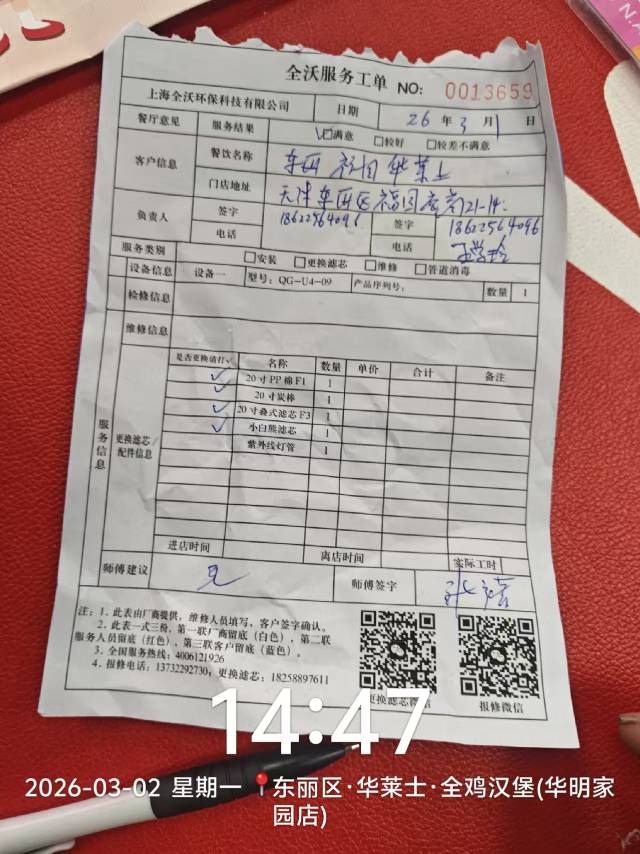 全沃服务工单 NO: 0013659
上海全沃环保科技有限公司 日期 26 年 3 月 1 日
餐厅意见 服务结果 ☑满意 □较好 □较差不满意
客户信息 餐饮名称 华莱士
门店地址 天津东丽区 21-14
负责人 签字 18622564096 签字 18622564096
电话 电话
服务类别 □安装 □更换滤芯 □维修 □管道消毒
设备信息 设备一 型号: QG-U4-09 产品序列号: 数量 1
检修信息
维修信息
服务信息 更换滤芯/配件信息
是否更换请打✓ 名称 数量 单价 合计 备注
✓ 20寸PP棉F1 1
✓ 20寸炭棒 1
✓ 20寸叠式滤芯F3 1
✓ 小白熊滤芯 1
紫外线灯管 1
进店时间 离店时间 实际工时
师傅建议 无 师傅签字
注: 1. 此表由厂商提供, 维修人员填写, 客户签字确认。
2. 此表一式三份, 第一联厂商留底(白色), 第二联
服务人员留底(红色), 第三联客户留底(蓝色)。
3. 全国服务热线: 4006121926
4. 报修电话: 13732292730; 更换滤芯: 18258897611
更换滤芯微信 报修微信
14:47
2026-03-02 星期一 东丽区·华莱士·全鸡汉堡(华明家
园店)